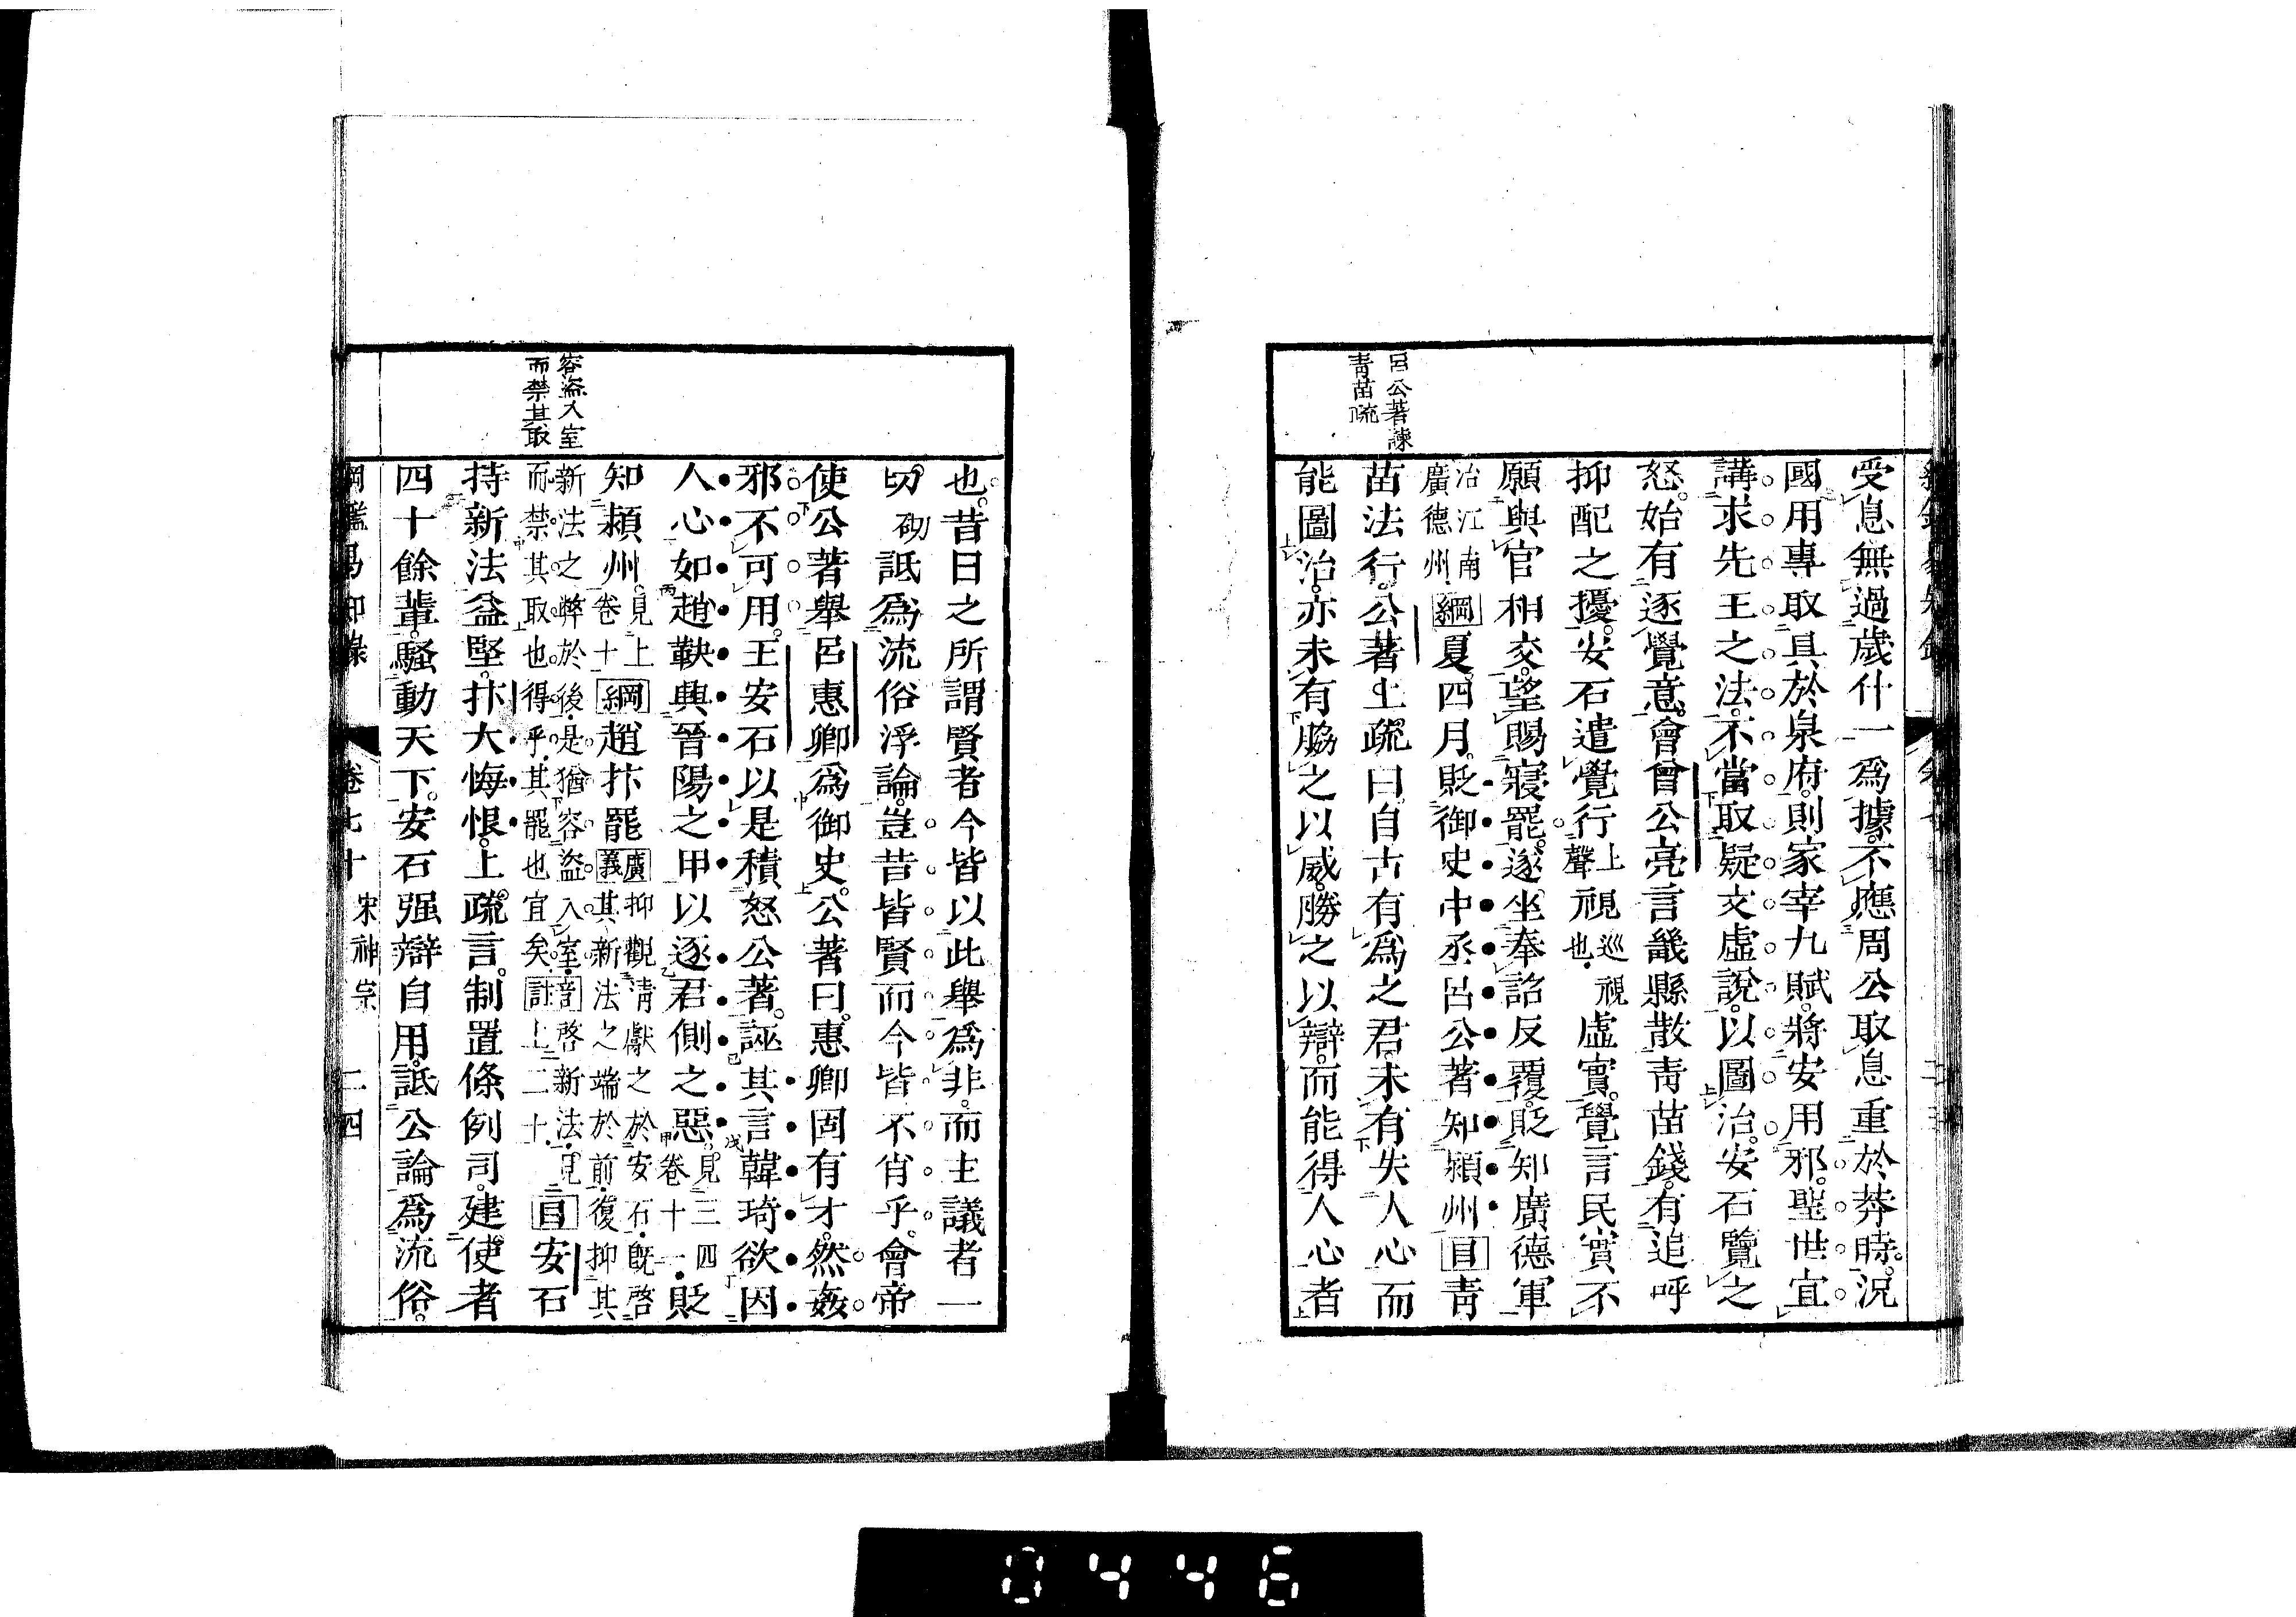 呂公著諫
青苗疏
受息無過歲什一爲據不應周公取息重於莽時況
國用專取具於泉府則家宰九賦將安用邪聖世宜
講求先王之法不當取疑文虛說以圖治安石覽之
怒始有逐覺意會曾公亮言畿縣散青苗錢有追呼
抑配之擾安石遣覺行上聲視巡視也虛實覺言民實不
願與官相交望賜寢罷遂坐奉詔反覆貶知廣德軍
治江南廣德州綱夏四月貶御史中丞呂公著知潁州目青
苗法行公著上疏曰自古有爲之君未有失人心而
能圖治亦未有脇之以威勝之以辯而能得人心者
容盜入室
而禁其取
也昔日之所謂賢者今皆以此舉爲非而主議者一
切砌詆爲流俗浮論豈昔皆賢而今皆不肖乎會帝
使公著舉呂惠卿爲御史公著曰惠卿固有才然姦
邪不可用王安石以是積怒公著誣其言韓琦欲因
人心如趙鞅興晉陽之甲以逐君側之惡見三四卷十一貶
知潁州見上卷十綱趙抃罷廣義抑觀清獻之於安石既啓其新法之端於前復抑其
新法之弊於後是猶容盜入室而禁其取也得乎其罷也宜矣音註啓新法見上二十目安石
持新法益堅抃大悔恨上疏言制置條例司建使者
四十餘輩騷動天下安石强辯自用詆公論爲流俗
綱鑑易知錄 卷七十 宋神宗 二四
0446